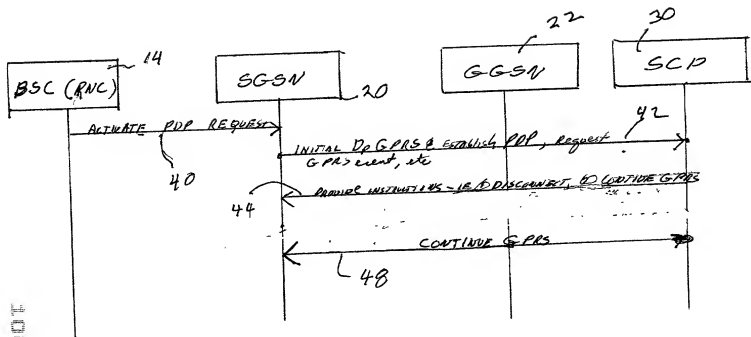 22
30
14
BSC (RNC)
SGSN
20
GGSN
SCP
ACTIVATE PDP REQUEST
40
INITIAL DP GPRS & ESTABLISH PDP, Request
GPRS event, etc
42
PROVIDE INSTRUCTIONS - IE DISCONNECT, CONTINUE GPRS
44
CONTINUE GPRS
48